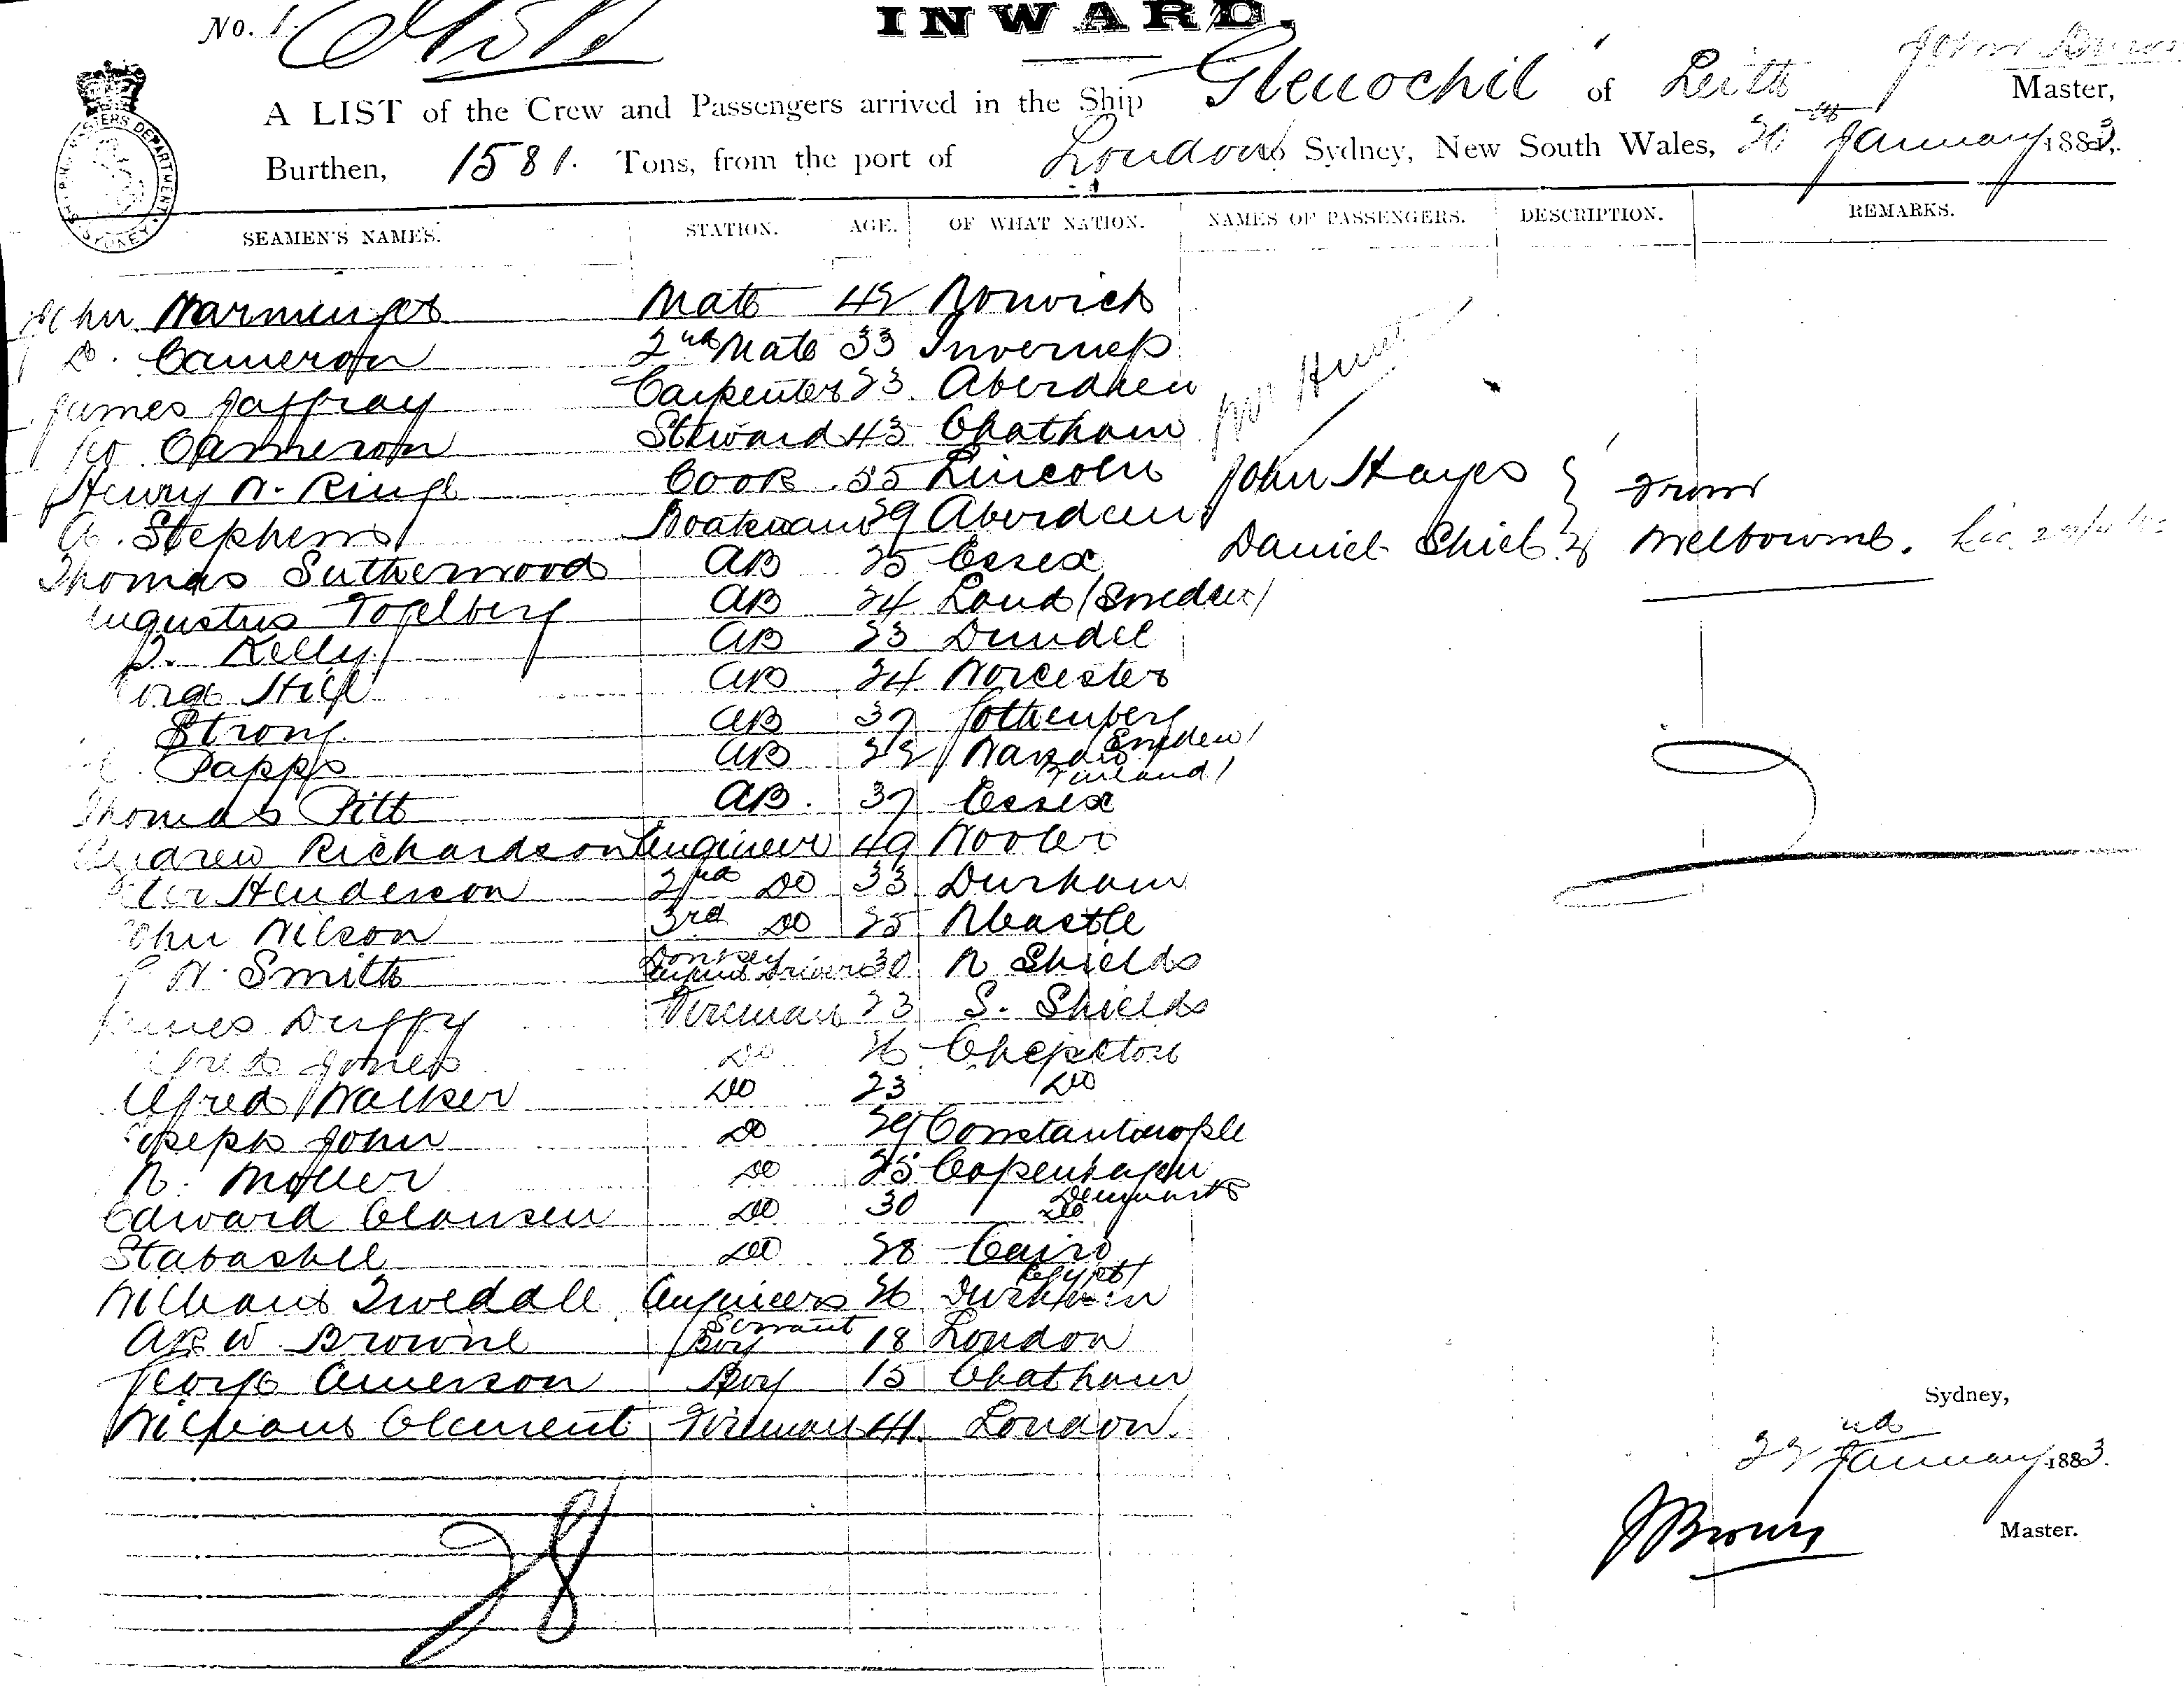 No. 1.
INWARD.
A LIST of the Crew and Passengers arrived in the Ship Glenochil of Leith John Master,
Burthen, 1581. Tons, from the port of London Sydney, New South Wales, January 1883.
SEAMEN'S NAMES. STATION. AGE. OF WHAT NATION. NAMES OF PASSENGERS. DESCRIPTION. REMARKS.
John Warminger Mate 42 Norwich
D. Cameron 2nd Mate 33 Inverness
James Jaffray Carpenter 23 Aberdeen
Cameron Steward 43 Chatham
Henry W. Ringe Cook 35 Lincoln John Hayes } From
A. Stephens Boatswain 29 Aberdeen Daniel Shiel } Melbourne.
Thomas Sutherwood AB 25 Essex
Augustus Fogelberg AB 24 Lund (Sweden)
Kelly AB 23 Dundee
Hill AB 24 Worcester
Strong AB 37 Gothenberg Sweden)
Papps AB 22 Finland)
Thomas Pitt AB. 37 Essex
Andrew Richardson Engineer 49 Wooler
Peter Henderson 2nd Do 33 Durham
John Wilson 3rd Do 25 NCastle
W. Smith Donkey Engine Driver 30 N Shields
James Duffy Fireman 23 S. Shields
Alfred Jones Do 26 Chepstow
Alfred Walker Do 23 Do
Joseph John Do 29 Constantinople
N. Moller Do 25 Copenhagen Denmark
Edward Clausen Do 30 Do
Stabashll Do 28 Cairo Egypt)
William Twedall Engineers Servant 26 Durham
A R W Browne Boy 18 London
George Amerson Boy 15 Chatham
William Clement Fireman 41 London.
Sydney,
22nd January 1883.
J Brown Master.